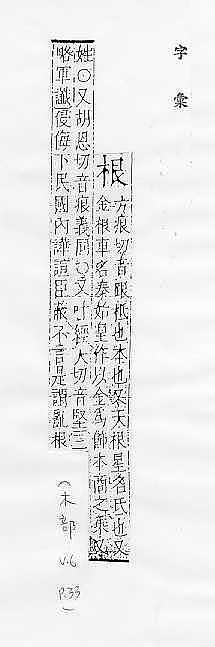 字彙
根 方痕切音跟柢也本也○又天根星名氐也又
金根車名秦始皇作以金爲飾本商之乘 又
姓○又胡恩切音痕義同○又叶經天切音堅三
略軍讖侵侮下民國內譁諠臣蔽不言是謂亂根
(木部
V.6
P.33)